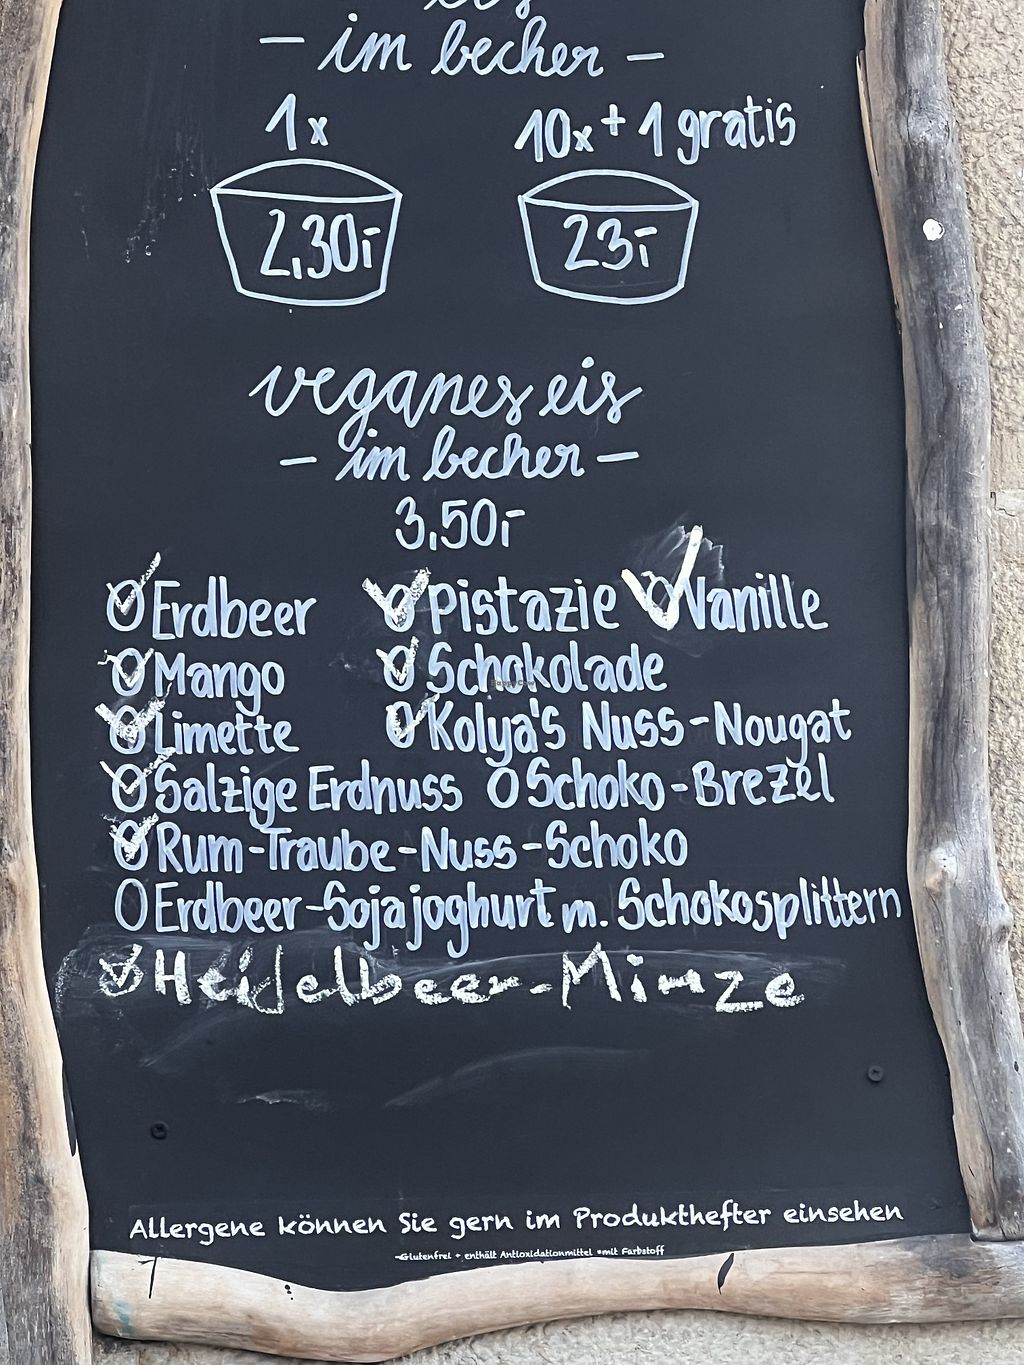 eis
- im becher -
1x 10x + 1 gratis
2,30,- 23,-
veganes eis
- im becher -
3,50,-
Erdbeer Pistazie Vanille
Mango Schokolade
Limette Kolya's Nuss-Nougat
Salzige Erdnuss Schoko-Brezel
Rum-Traube-Nuss-Schoko
Erdbeer-Sojajoghurt m. Schokosplittern
Heidelbeer-Minze
Allergene können Sie gern im Produkthefter einsehen
-Glutenfrei + enthält Antioxidationmittel *mit Farbstoff